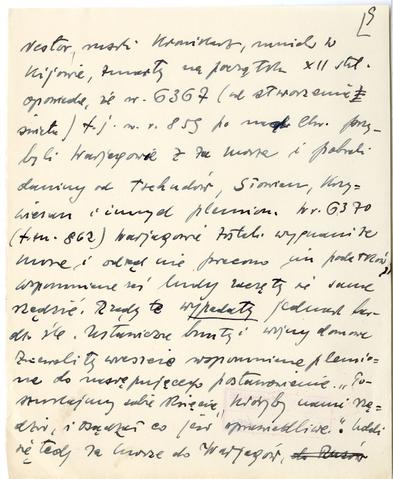 5
Nestor, ruski kronikarz, mnich w
Kijowie, zmarły na początku XII stul.
opowiada, że w r. 6367 (od stworzenia
świata) t.j. w r. 859 po Chr. przy-
byli Warjagowie z za morza i pobrali
daninę od Tschudów, Słowian, Kry-
wiczan i innych plemion. W r. 6370
(t.zn. 862) Warjagowie zostali wygnani za
morze, i odtąd nie płacono im podatków,
wspomniane zaś ludy zaczęły się same
rządzić. Rządy te wypadały jednak bar-
dzo źle. Ustawiczne bunty i wojny domowe
zniewoliły wreszcie wspomniane plemio-
na do następującego postanowienia: "Po-
szukajmy sobie księcia, któryby nami rzą-
dził, i osądzał co jest sprawiedliwe". Udali
się tedy za morze do Warjagów, do Rusów